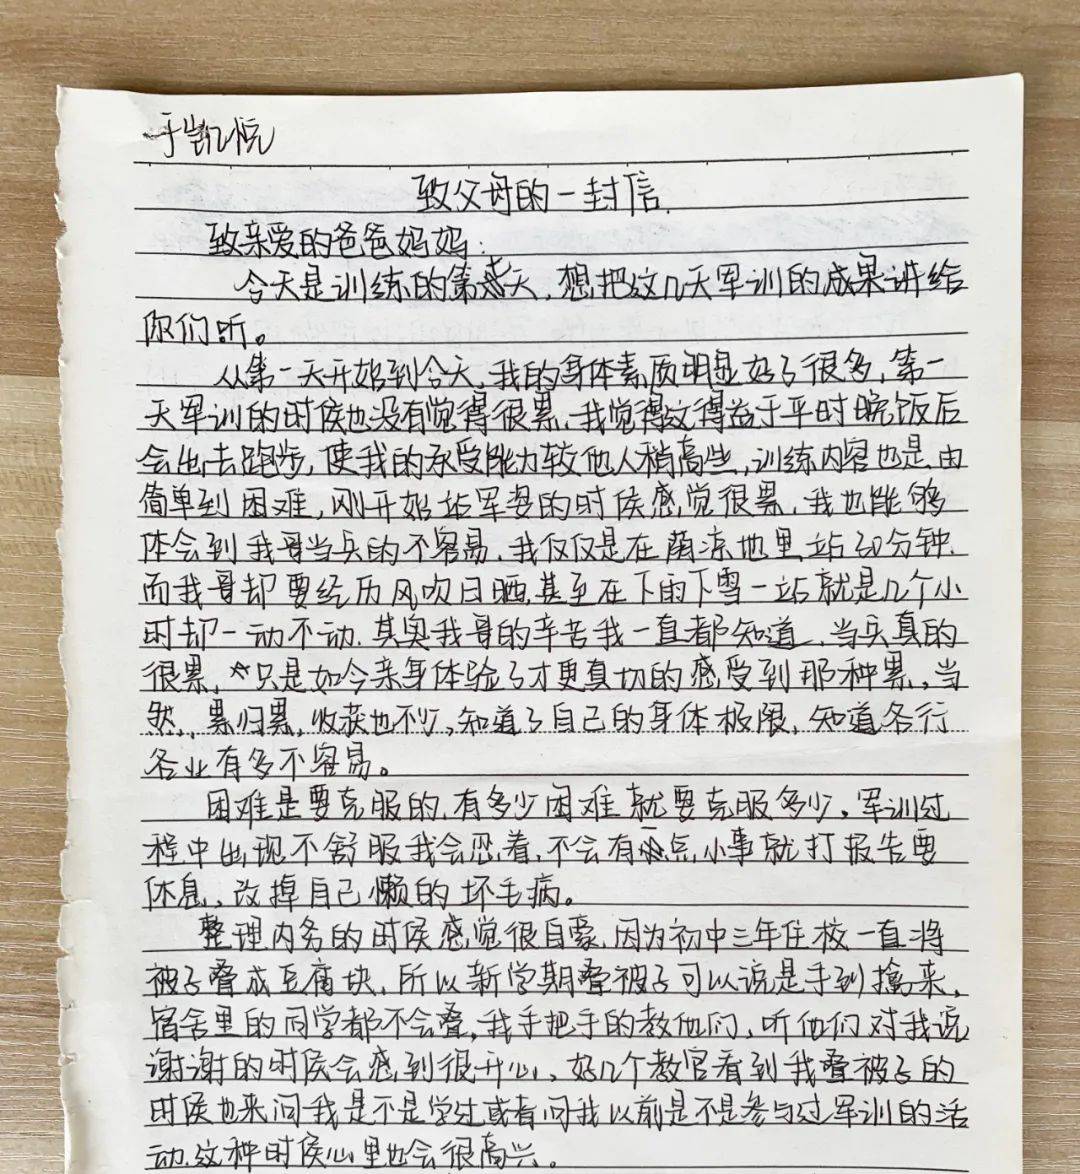 于凯悦
致父母的一封信.
致亲爱的爸爸妈妈:
今天是训练的第天,想把这几天军训的成果讲给
你们听。
从第一天开始到今天,我的身体素质明显好了很多,第一
天军训的时候也没有觉得很累,我觉得这得益于平时晚饭后
会出去跑步,使我的承受能力较他人稍高些,训练内容也是由
简单到困难,刚开始站军姿的时候感觉很累,我也能够
体会到我哥当兵的不容易,我仅仅是在荫凉地里站30分钟,
而我哥却要经历风吹日晒,甚至在下雨下雪一站就是几个小
时却一动不动.其实我哥的辛苦我一直都知道,当兵真的
很累,只是如今亲身体验了才更真切的感受到那种累,当
然,累归累,收获也不少,知道了自己的身体极限,知道各行
各业有多不容易。
困难是要克服的,有多少困难就要克服多少,军训过
程中出现不舒服我会忍着,不会有一点小事就打报告要
休息,改掉自己懒的坏毛病。
整理内务的时候感觉很自豪,因为初中三年住校一直将
被子叠成豆腐块,所以新学期叠被子可以说是手到擒来,
宿舍里的同学都不会叠,我手把手的教他们,听他们对我说
谢谢的时候会感到很开心,好几个教官看到我叠被子的
时候也来问我是不是学过或者问我以前是不是参与过军训的活
动,这种时候心里也会很高兴。